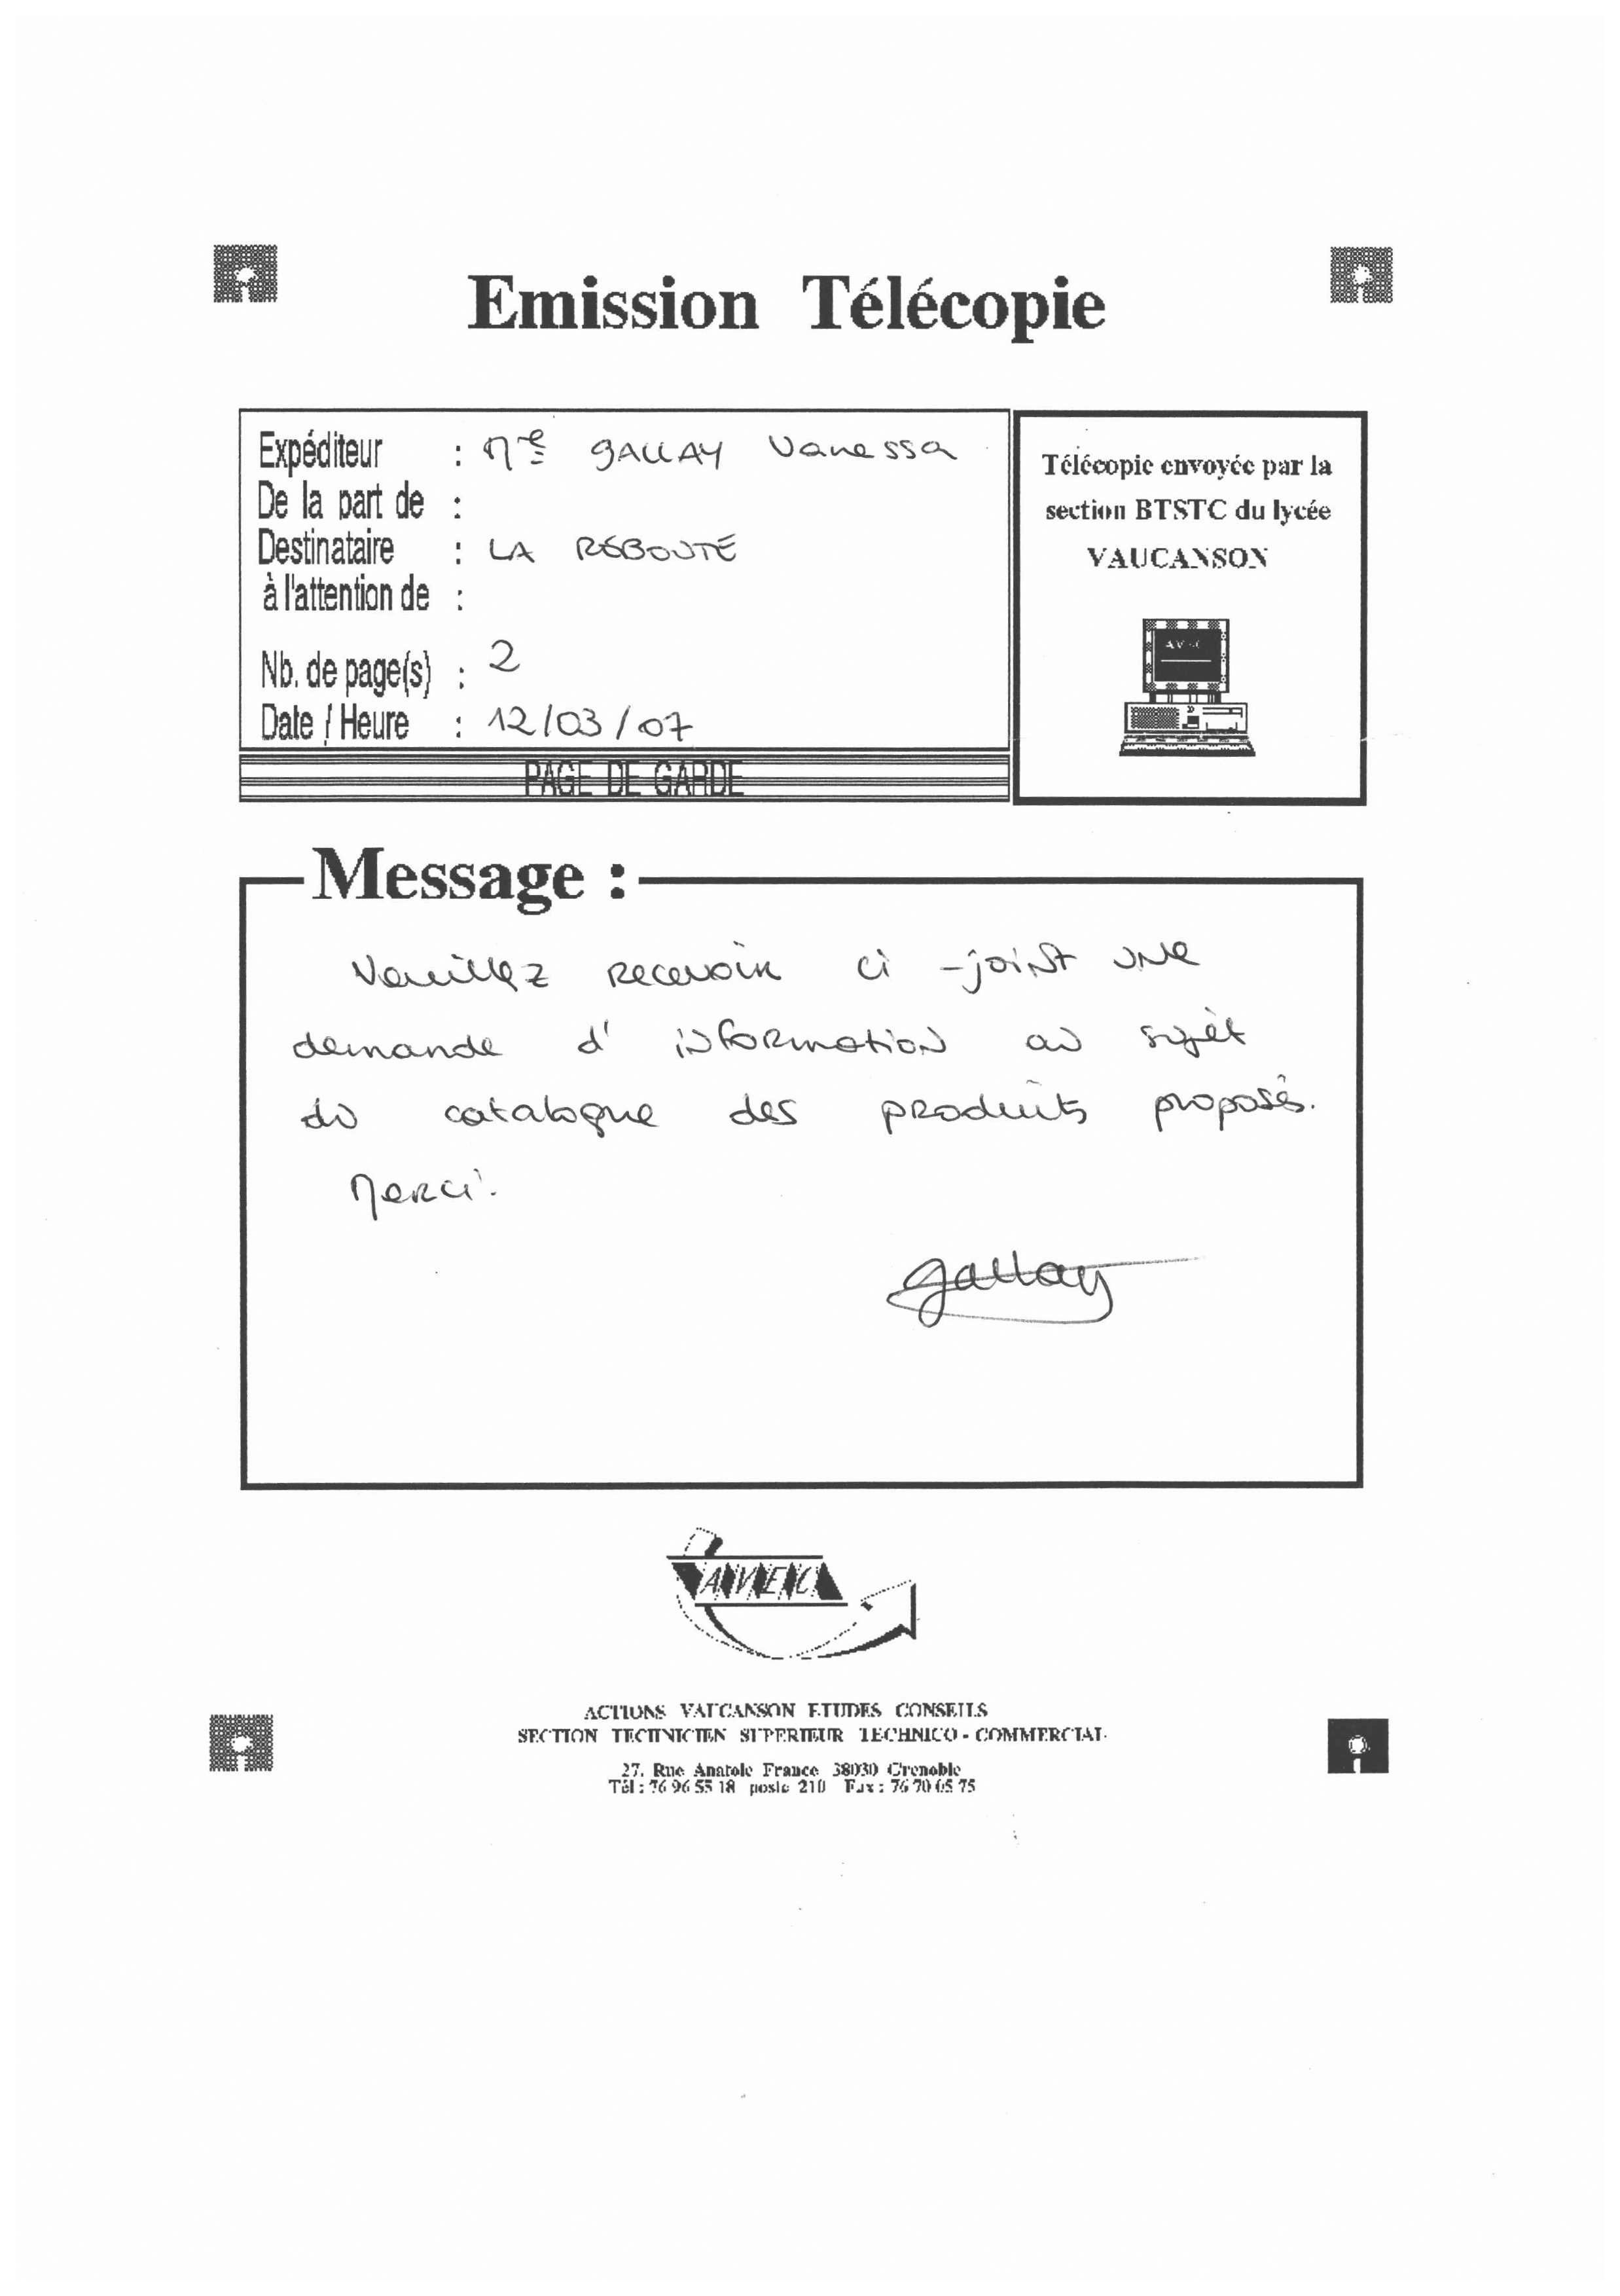 Emission Télécopie
Expéditeur : Mle GALLAY Vanessa
De la part de :
Destinataire : LA RÉBOUTÉ
à l'attention de :
Nb. de page(s) : 2
Date / Heure : 12/03/07
PAGE DE GARDE
Télécopie envoyée par la
section BTSTC du lycée
VAUCANSON
AVEC
Message :
Veuillez recevoir ci-joint une
demande d'information au sujet
du catalogue des produits proposés.
Merci.
Gallay
AVEC
ACTIONS VAUCANSON ETUDES CONSEILS
SECTION TECHNICIEN SUPERIEUR TECHNICO - COMMERCIAL
27, Rue Anatole France 38030 Grenoble
Tél : 76 96 55 18 poste 210 Fax : 76 70 65 75